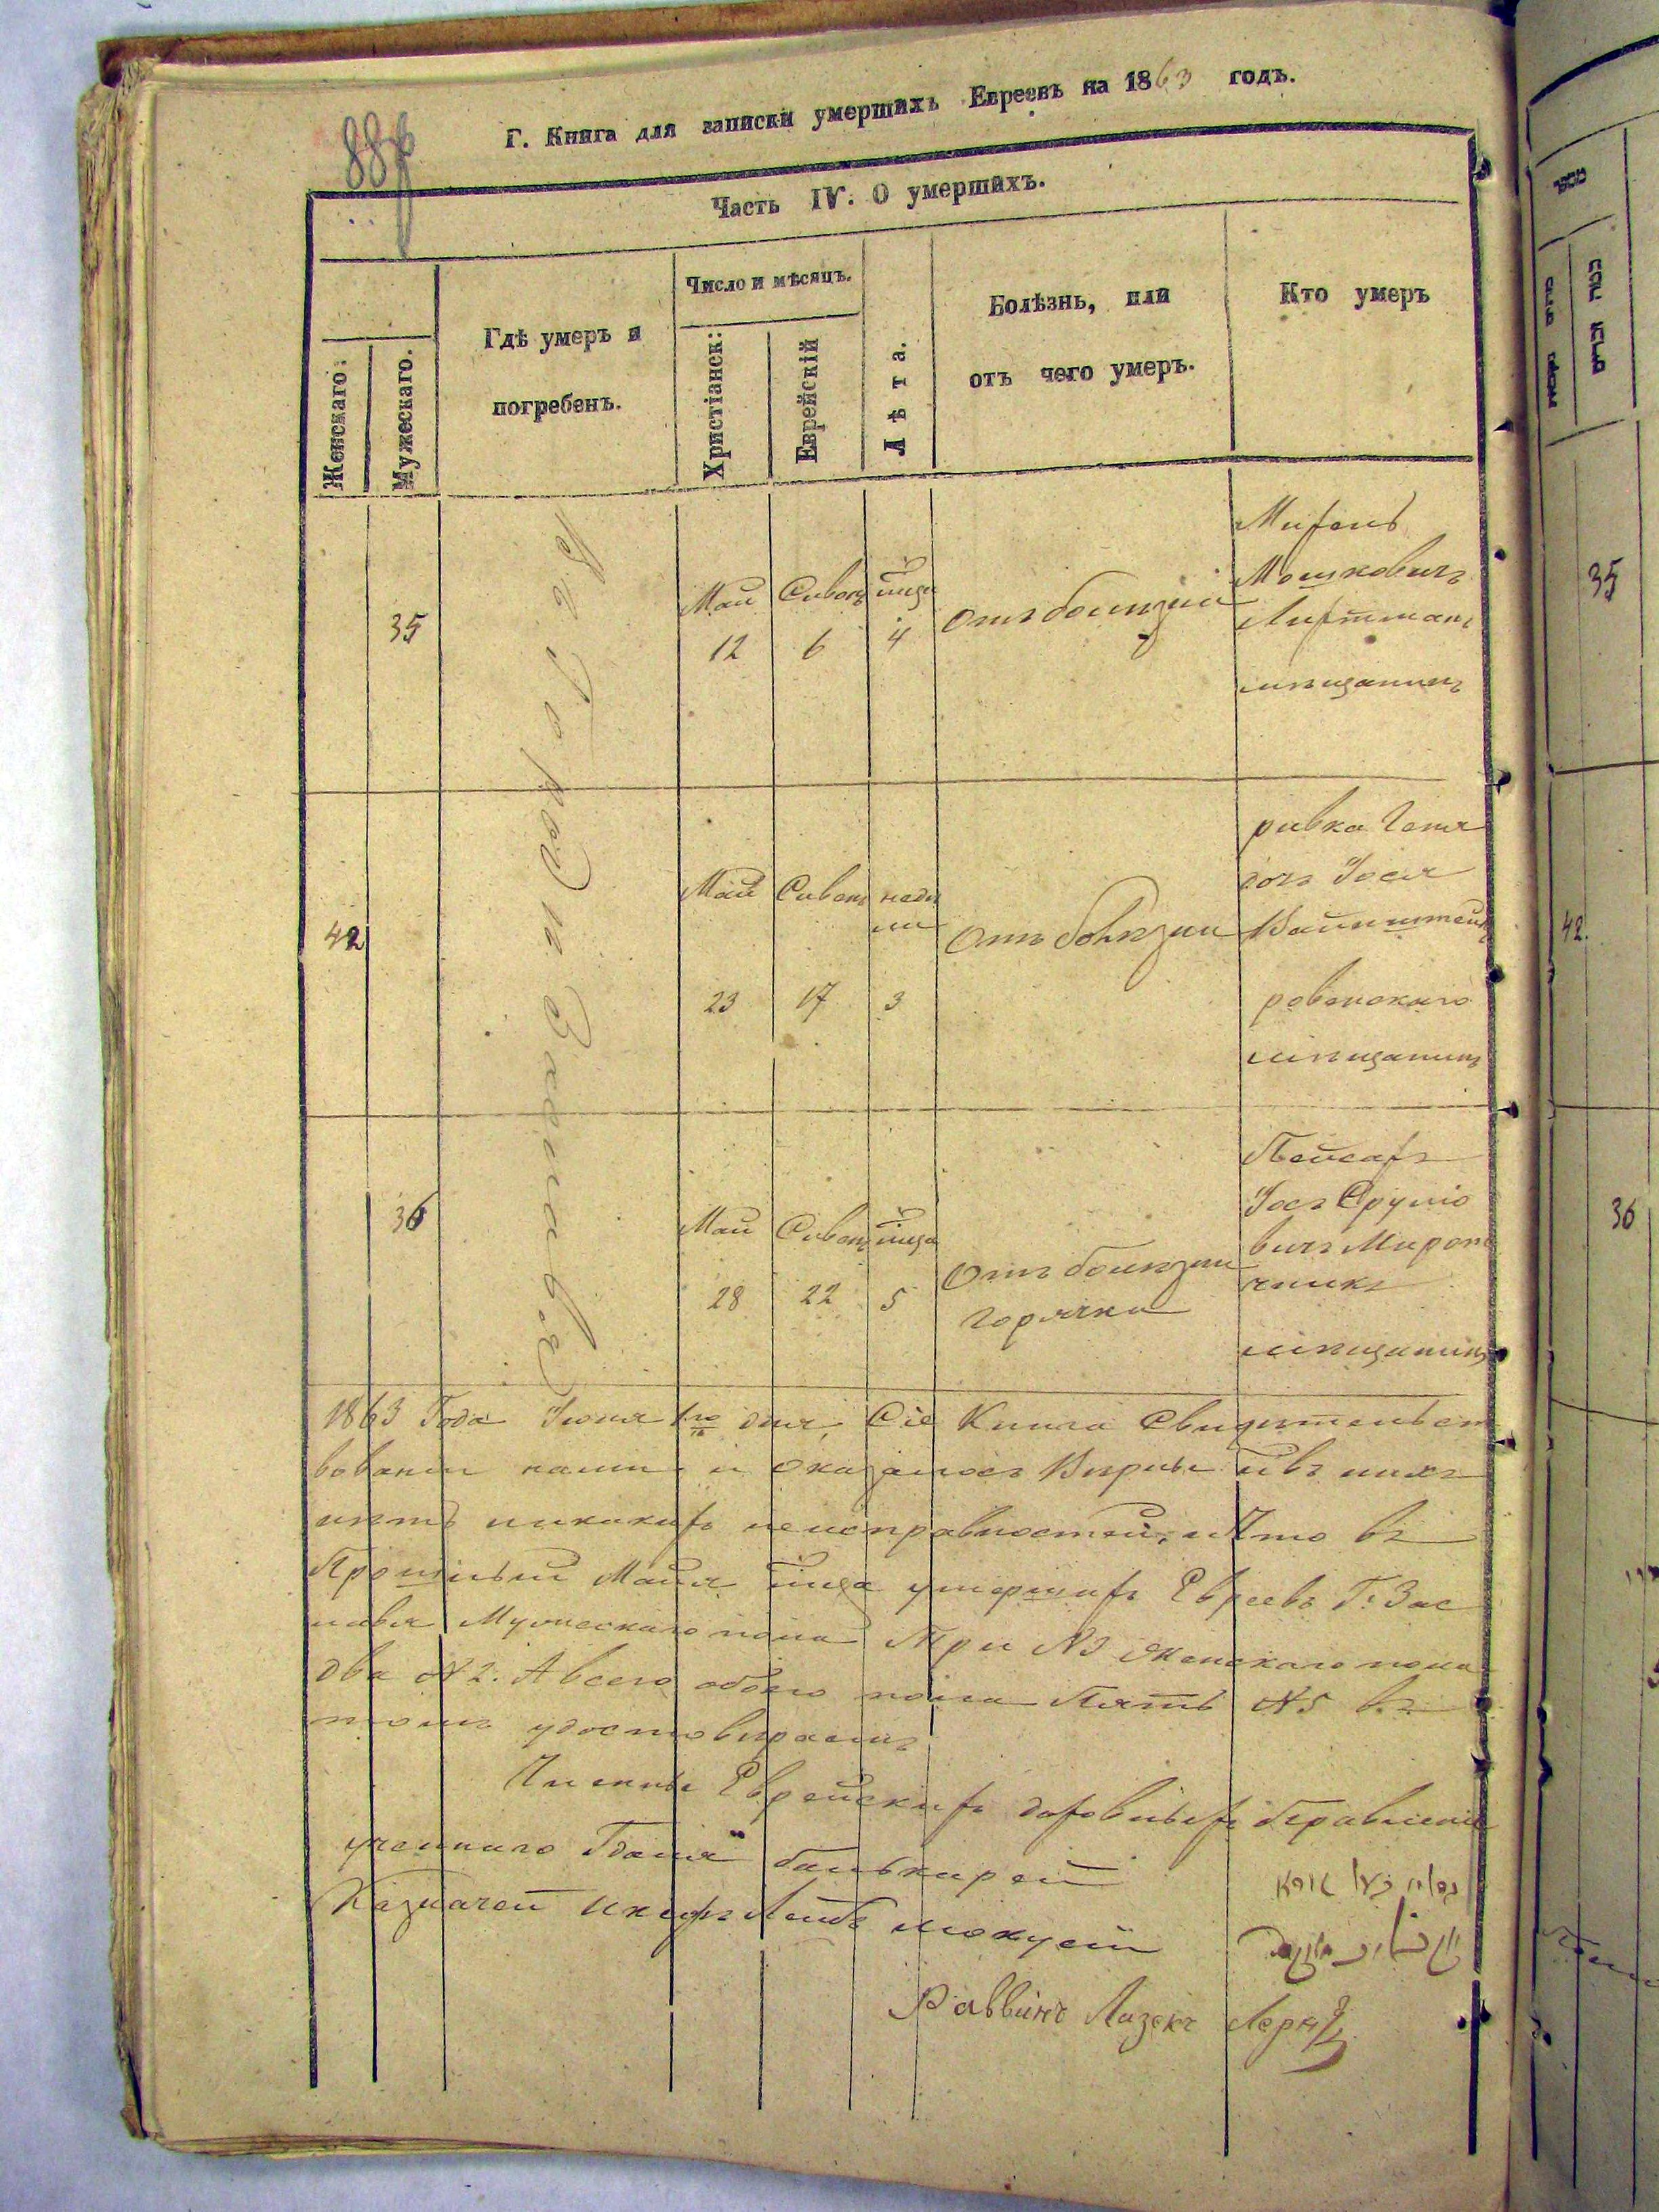 Г. Книга для записки умершихъ Евреевъ на 1863 годъ.
Часть IV. О умершихъ.
Женскаго.
Мужескаго.
Гдѣ умеръ и
погребенъ.
Число и мѣсяцъ.
Христіанск:
Еврейскій
Лѣта.
Болѣзнь, или
отъ чего умеръ.
Кто умеръ
въ Городи Заславя
35
Май
12
Сиванъ
6
4
Отъ болизни
Мошковичъ
мищанинъ
42
Май
23
Сиванъ
17
нади
ли
3
Отъ болизни
ривка Геня
дочъ Іося
Вайнштейнъ
ровенского
мищанинъ
36
Май
28
Сиванъ
22
5
Отъ болизни
горячки
Пейсахъ
Іосъ Сруліо
вичъ Миропо
чникъ
мищанинъ
1863 Года Іюня 1го дня, Сіе Книга Свидительст
вовании нами и оказалось Вирны и въ нихъ
нитъ никакихъ неисправностей, и Что въ
Прошлый Майя умершихъ Евреевъ Г. Зас
лавя Мужескаго пола Три №3 Женскаго пола
два №2. А всего обоего пола Пять №5 въ
томъ удостовираемъ
Члены Еврейскихъ доховныхъ Правления
ученнаго
Казначей
Раввинъ Лазекъ Лернъ
35
42
36